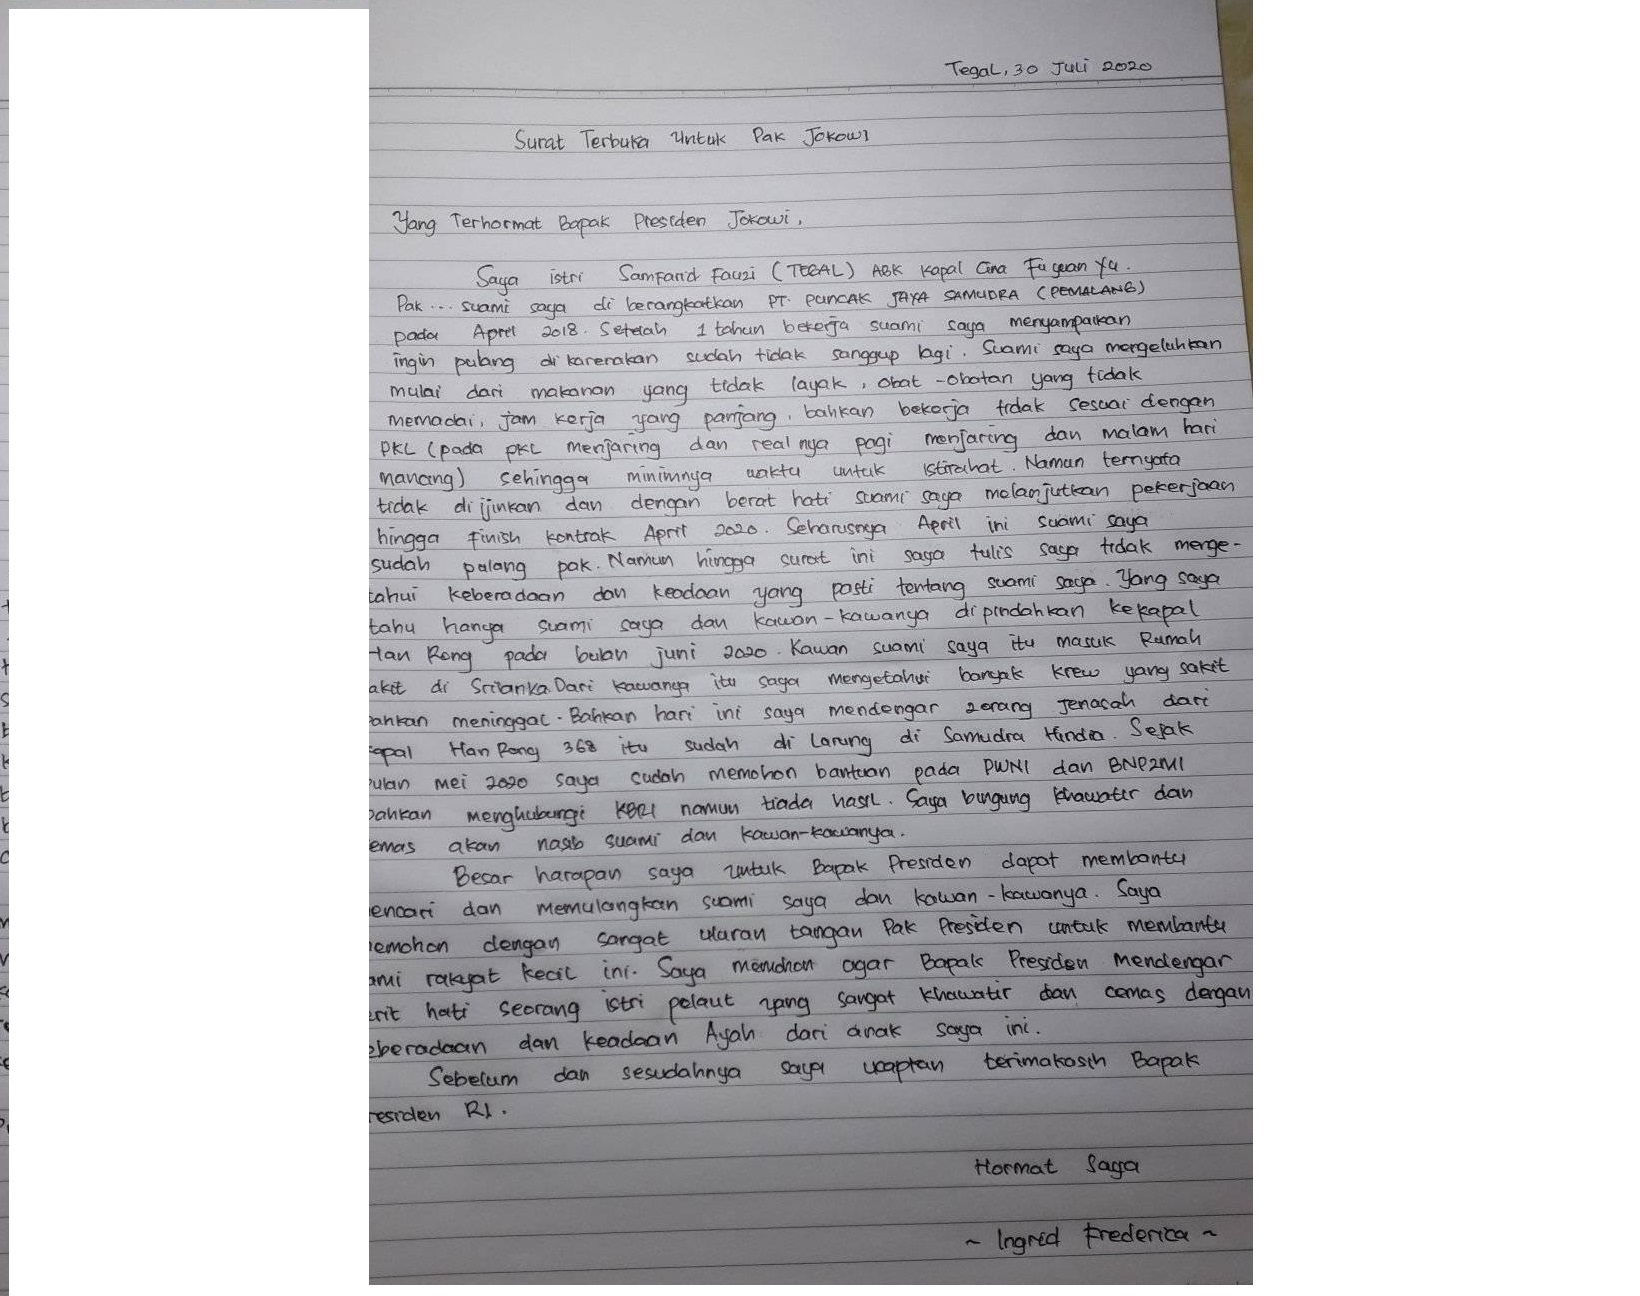 Tegal, 30 Juli 2020
Surat Terbuka Untuk Pak Jokowi
Yang Terhormat Bapak Presiden Jokowi,
Saya istri Samfarid Fauzi (TEGAL) ABK Kapal Cina Fu yuan Yu.
Pak ... suami saya di berangkatkan PT. PUNCAK JAYA SAMUDRA (PEMALANG)
pada April 2018. Setelah 1 tahun bekerja suami saya menyampaikan
ingin pulang di karenakan sudah tidak sanggup lagi. Suami saya mengeluhkan
mulai dari makanan yang tidak layak, obat-obatan yang tidak
memadai, jam kerja yang panjang, bahkan bekerja tidak sesuai dengan
PKL (pada PKL menjaring dan real nya pagi menjaring dan malam hari
mancing) sehingga minimnya waktu untuk istirahat. Namun ternyata
tidak di ijinkan dan dengan berat hati suami saya melanjutkan pekerjaan
hingga finish kontrak April 2020. Seharusnya April ini suami saya
sudah pulang pak. Namun hingga surat ini saya tulis saya tidak menge-
tahui keberadaan dan keadaan yang pasti tentang suami saya. Yang saya
tahu hanya suami saya dan kawan-kawanya di pindahkan kekapal
Han Rong pada bulan juni 2020. Kawan suami saya itu masuk Rumah
akit di Srilanka. Dari kawanya itu saya mengetahui banyak krew yang sakit
ahkan meninggal. Bahkan hari ini saya mendengar 2orang jenasah dari
apal Han Rong 368 itu sudah di Larung di Samudra Hindia. Sejak
ulan mei 2020 saya sudah memohon bantuan pada PWNI dan BNP2MI
bahkan menghubungi KBRI namun tiada hasil. Saya bingung khawatir dan
emas akan nasib suami dan kawan-kawanya.
Besar harapan saya untuk Bapak Presiden dapat membantu
encari dan memulangkan suami saya dan kawan-kawanya. Saya
emohon dengan sangat uluran tangan Pak Presiden untuk membantu
ami rakyat kecil ini. Saya memohon agar Bapak Presiden Mendengar
erit hati seorang istri pelaut yang sangat khawatir dan cemas dengan
eberadaan dan keadaan Ayah dari anak saya ini.
Sebelum dan sesudahnya saya ucapkan terimakasih Bapak
residen RI.
Hormat Saya
~ Ingrid Frederica ~